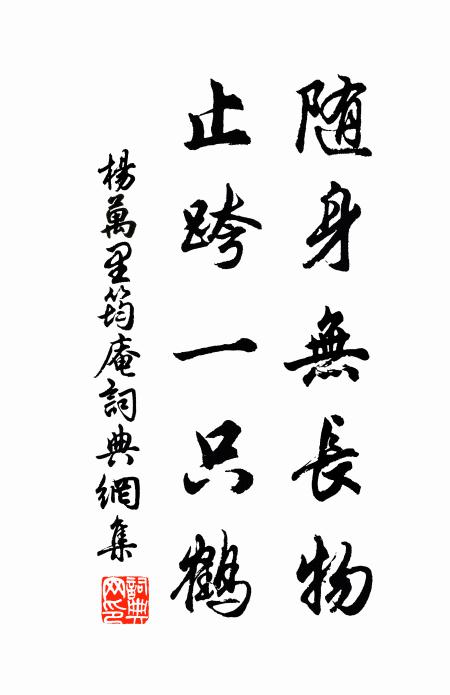 随身無長物
止跨一只鶴
楊萬里筠庵詞典網集
詞典网印